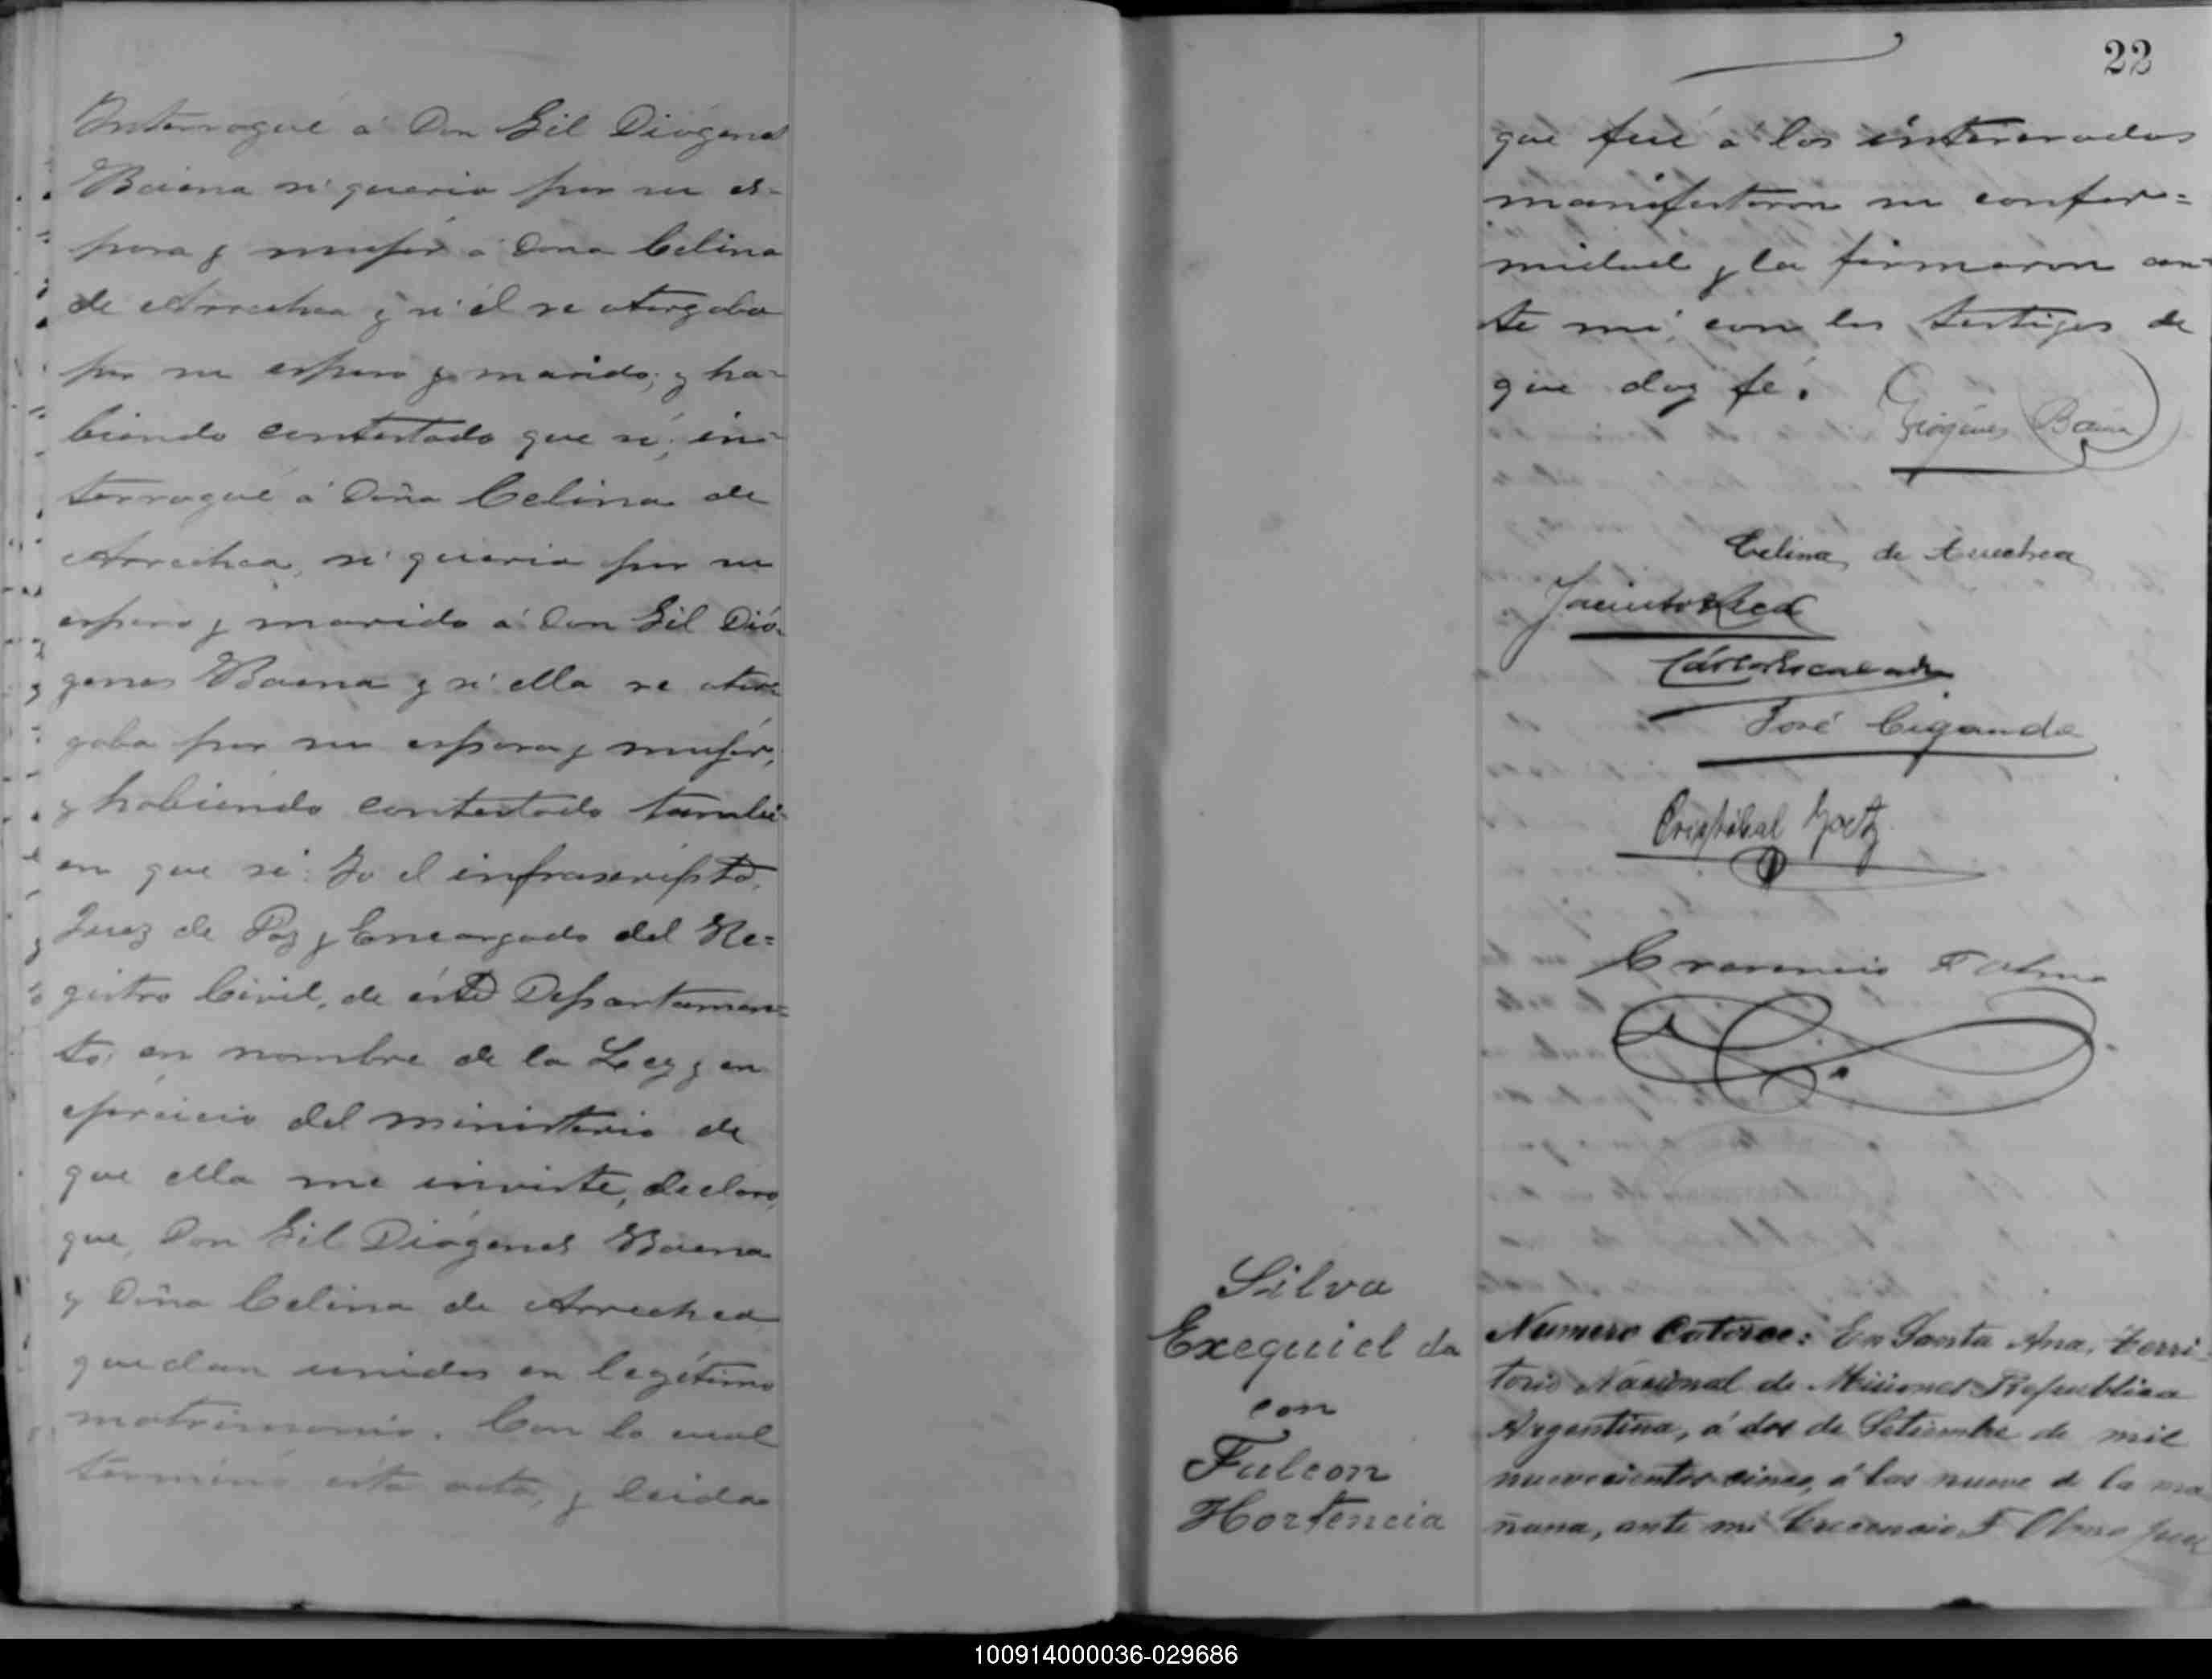 Interrogué á Don Gil Diógenes
Baena si queria por su es-
posa y mujer á Dona Celina
de Arrechea y si él se otorgaba
por su esposo y marido; y ha-
biendo contestado que sí, in-
terrogué á Doña Celina de
Arrechea, si queria por su
esposo y marido á Don Gil Dió-
genes Baena y si ella se otor-
gaba por su esposa y mujér,
y habiendo contestado tambi-
en que si: Yo el infrascripto,
Juez de Paz y Encargado del Re=
gistro Civil, de éste Departamen=
to, en nombre de la Ley y en
ejercicio del ministerio de
que ella me inviste, declaro,
que, Don Gil Diógenes Baena
y Doña Celina de Arrechea
quedan unidos en legítimo
matrimonio. Con lo cual
terminó esta acta, y leida
22
que fué á los interesados
manifestaron su confor=
midad y la firmaron an-
te mi, con los testigos de
que doy fé.
Diógenes Baena
Celina de Arrechea
Jacinto
José Ciganda
Cristóbal
Crecencio F Olmo
Silva
Exequiel da
con
Falcon
Hortencia
Numero Catorce: En Santa Ana, Terri-
torio Nacional de Misiones Republica
Argentina, á dos de Setiembre de mil
nuevecientos cinco, á las nueve de la ma
ñana, ante mi Crecencio F Olmo Juez
100914000036-029686